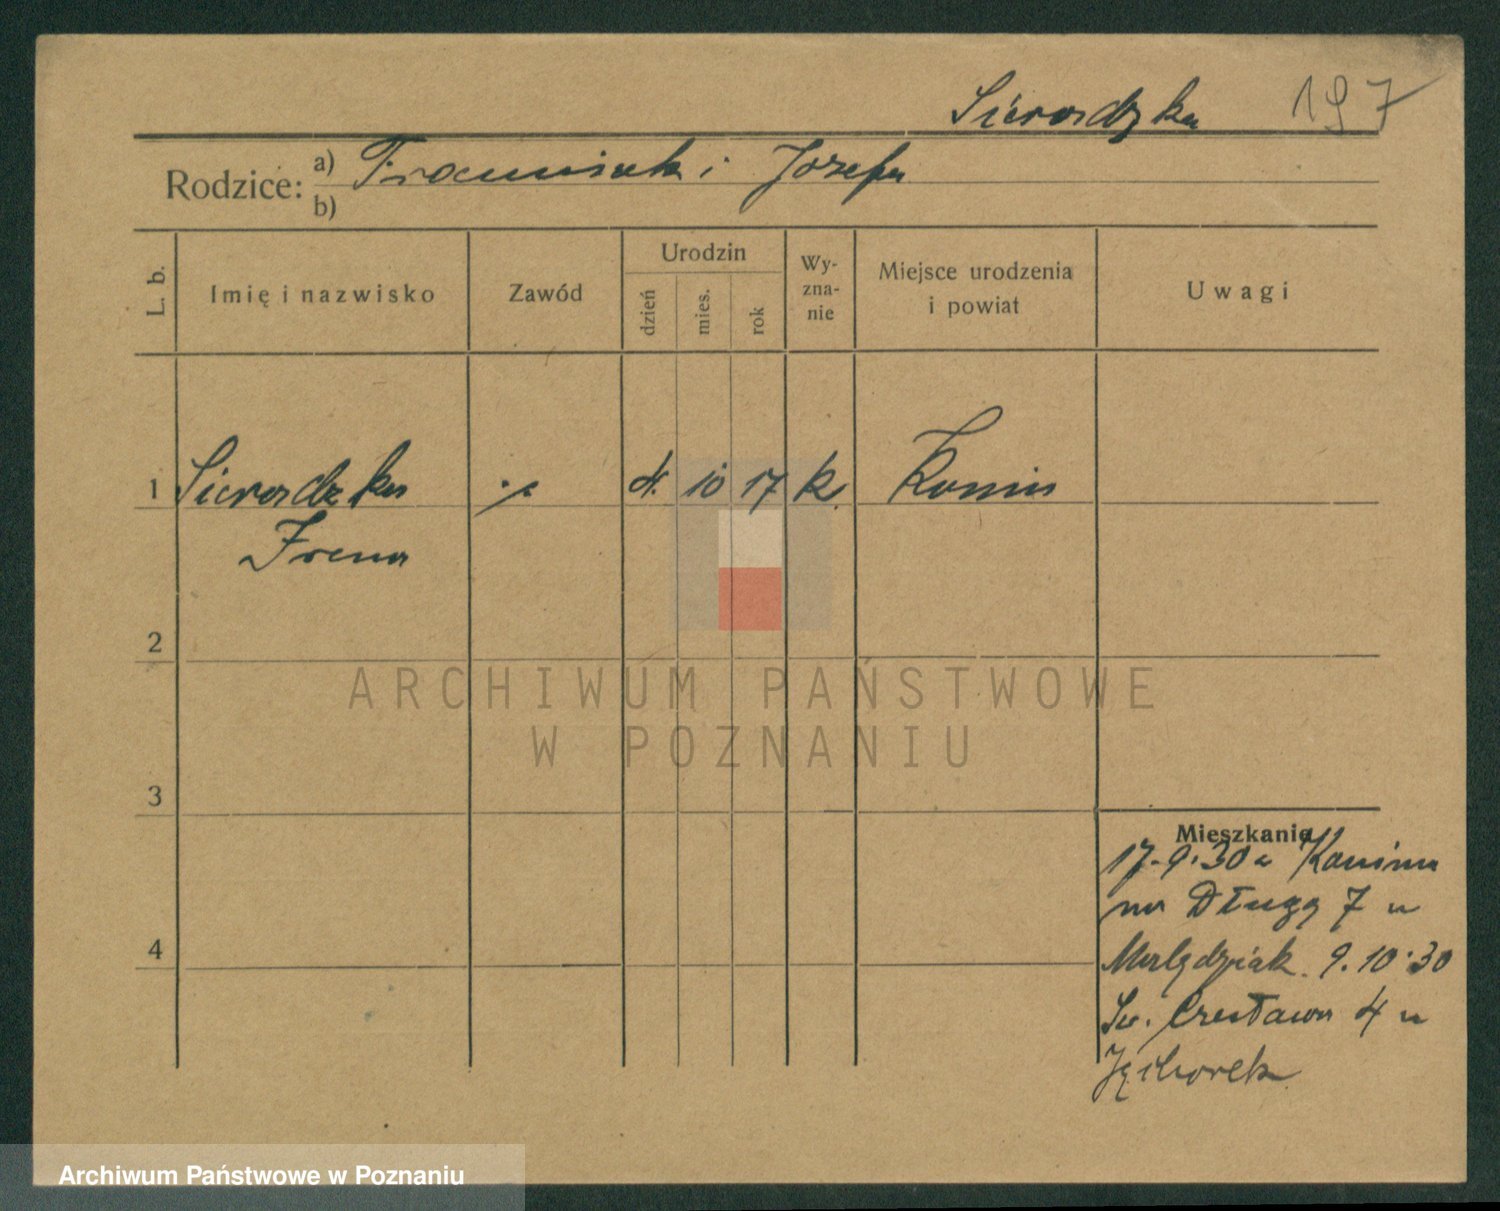 Sieradzka 197
Rodzice: a) Franciszek i Józefa
b)
L. b. Imię i nazwisko Zawód Urodzin dzień mies. rok Wy-zna-nie Miejsce urodzenia i powiat Uwagi
1 Sieradzka 4. 10 17 k. Konin
Irena
2
ARCHIWUM PAŃSTWOWE
W POZNANIU
3
Mieszkanie
17.9.30 z Konina
4
na Długą 7 u
9.10.30
Św. Czesława 4 u
Archiwum Państwowe w Poznaniu